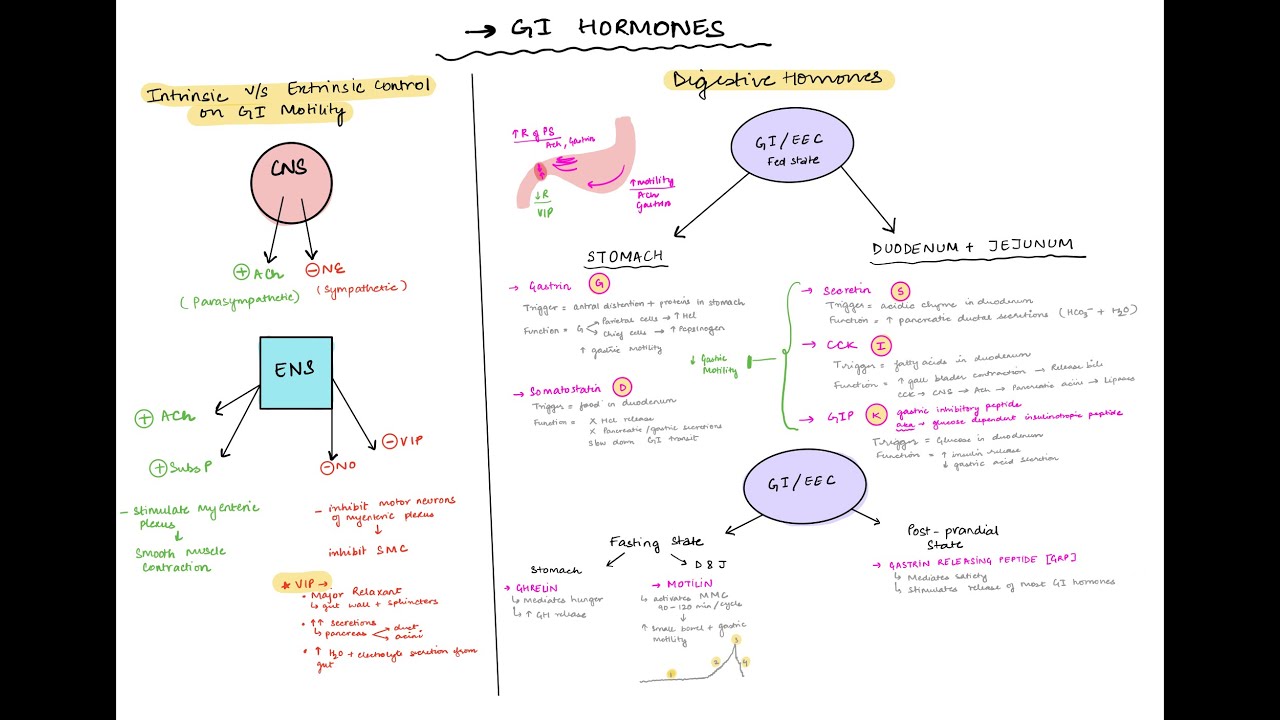 → GI HORMONES
Intrinsic v/s Extrinsic Control
on GI Motility
CNS
+ ACh
(Parasympathetic)
- NE
(Sympathetic)
ENS
+ ACh
+ Subs P
- NO
- VIP
- stimulate myenteric
plexus
↓
Smooth muscle
contraction
- inhibit motor neurons
of myenteric plexus
↓
inhibit SMC
* VIP →
• Major Relaxant
↳ gut wall + sphincters
• ↑↑ secretions
↳ pancreas < duct
acini
• ↑ H2O + electrolyte secretion from
gut
Digestive Hormones
GI/EEC
Fed state
↑ R of PS
ACh, Gastrin
↓ R
VIP
↑ motility
ACh
Gastrin
STOMACH
→ Gastrin G
Trigger = antral distention + proteins in stomach
Function = G < Parietal cells → ↑ HCl
Chief cells → ↑ Pepsinogen
↑ gastric motility
→ Somatostatin D
Trigger = food in duodenum
Function = X HCl release
X Pancreatic/gastric secretions
slow down GI transit
DUODENUM + JEJUNUM
↓ Gastric
Motility
→ Secretin S
Trigger = acidic chyme in duodenum
Function = ↑ pancreatic ductal secretions (HCO3- + H2O)
→ CCK I
Trigger = fatty acids in duodenum
Function = ↑ gall blader contraction → Release bile
CCK → CNS → ACh → Pancreatic acini → Lipases
→ GIP K gastric inhibitory peptide
aka → glucose dependent insulinotropic peptide
Trigger = Glucose in duodenum
Function = ↑ insulin release
↓ gastric acid secretion
GI/EEC
Fasting State
Stomach
→ GHRELIN
↳ mediates hunger
↳ ↑ GH release
D & J
→ MOTILIN
↳ activates MMC
90-120 min/cycle
↓
↑ small bowel + gastric
motility
1 2 3 4
Post-prandial
State
→ GASTRIN RELEASING PEPTIDE [GRP]
↳ Mediates satiety
↳ stimulates release of most GI hormones